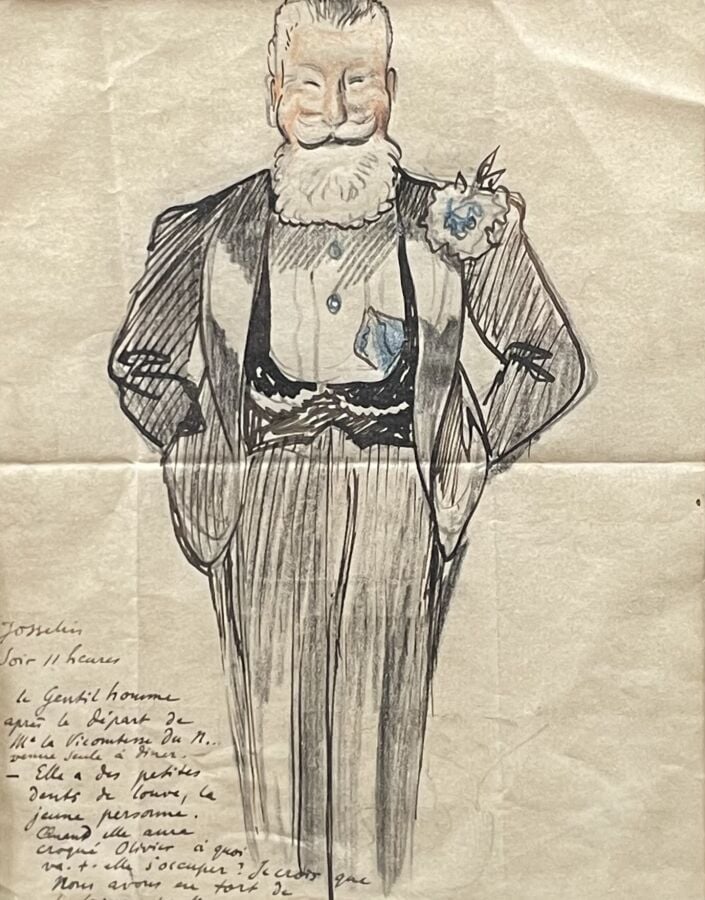 Josselin
Soir 11 heures
le Gentilhomme
après le départ de
Me la Vicomtesse du N...
venue seule à diner.
— Elle a des petites
dents de louve, la
jeune personne.
Quand elle aura
croqué Olivier à quoi
va-t-elle s'occuper? Je crois que
nous avons eu tort de